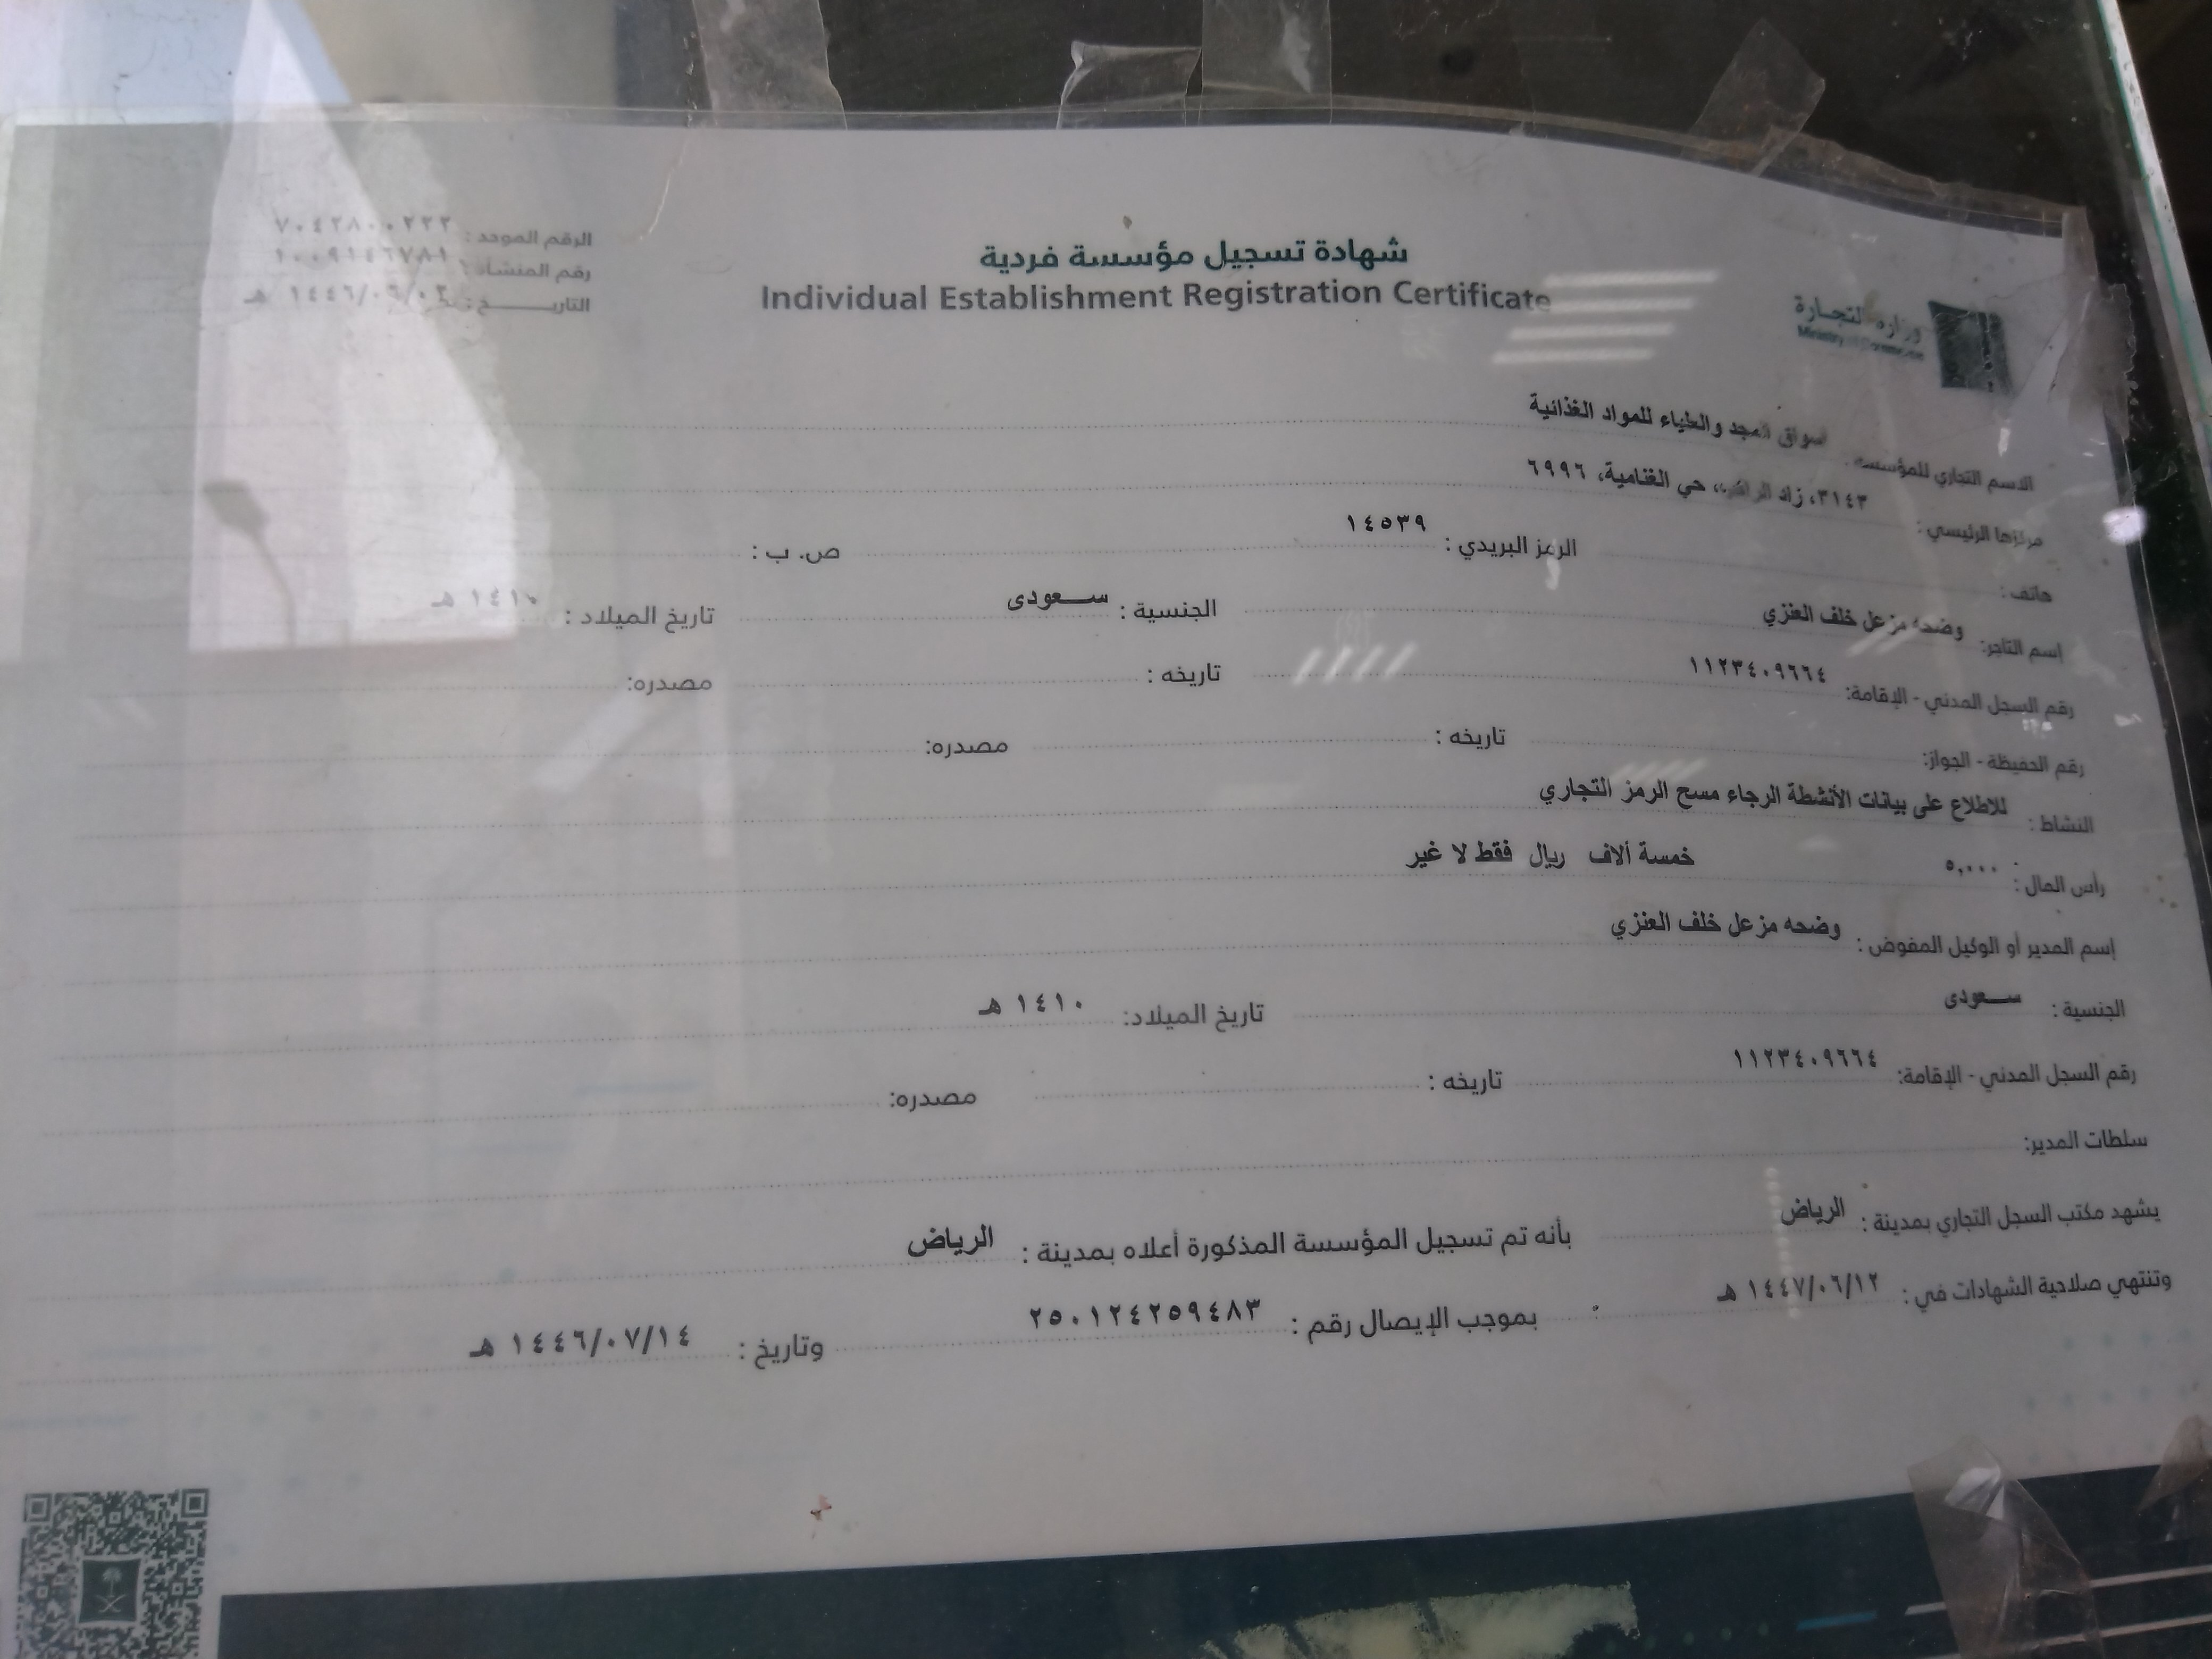 شهادة تسجيل مؤسسة فردية
Individual Establishment Registration Certificate
وزارة التجارة
Ministry of Commerce
الرقم الموحد :
رقم المنشأة :
التاريـــــخ : هـ
الاسم التجاري للمؤسسة : أسواق المجد والعلياء للمواد الغذائية
مركزها الرئيسي : ٣١٤٣، زاد حي الغنامية، ٦٩٩٦
هاتف : الرمز البريدي : ١٤٥٣٩ ص. ب :
إسم التاجر: وضحه مزعل خلف العنزي الجنسية : سـعودى تاريخ الميلاد : ١٤١٠ هـ
رقم السجل المدني - الإقامة: ١١٢٣٤٠٩٦٦٤ تاريخه : مصدره:
رقم الحفيظة - الجواز: تاريخه : مصدره:
النشاط : للاطلاع على بيانات الأنشطة الرجاء مسح الرمز التجاري
رأس المال : ٥,٠٠٠ خمسة ألاف ريال فقط لا غير
إسم المدير أو الوكيل المفوض : وضحه مزعل خلف العنزي
الجنسية : سـعودى تاريخ الميلاد: ١٤١٠ هـ
رقم السجل المدني - الإقامة: ١١٢٣٤٠٩٦٦٤ تاريخه : مصدره:
سلطات المدير:
يشهد مكتب السجل التجاري بمدينة : الرياض بأنه تم تسجيل المؤسسة المذكورة أعلاه بمدينة : الرياض
وتنتهي صلاحية الشهادات في : ١٤٤٧/٠٦/١٢ هـ بموجب الإيصال رقم : ٢٥٠١٢٤٢٥٩٤٨٣ وتاريخ : ١٤٤٦/٠٧/١٤ هـ